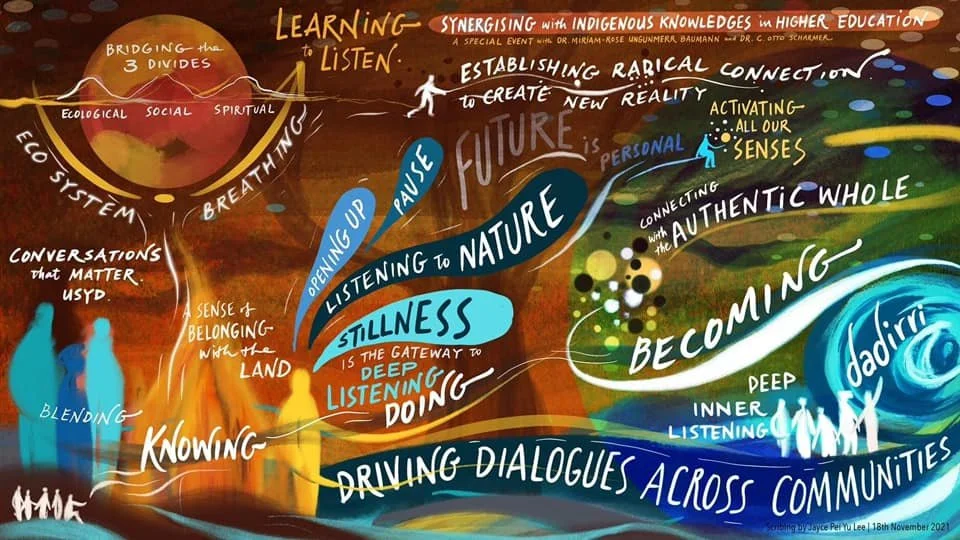 LEARNING
to LISTEN.
SYNERGISING with INDIGENOUS KNOWLEDGES in HIGHER EDUCATION
A SPECIAL EVENT with DR. MIRIAM-ROSE UNGUNMERR BAUMANN and DR. C. OTTO SCHARMER
BRIDGING the
3 DIVIDES
ECOLOGICAL SOCIAL SPIRITUAL
ECO SYSTEM
BREATHING
ESTABLISHING RADICAL CONNECTION
to CREATE NEW REALITY
FUTURE is PERSONAL
ACTIVATING
ALL OUR
SENSES
CONNECTING
with the AUTHENTIC WHOLE
PAUSE
OPENING UP
LISTENING to NATURE
CONVERSATIONS
that MATTER.
USYD.
A SENSE of
BELONGING
with the
LAND
STILLNESS
IS THE GATEWAY to
DEEP
LISTENING
BLENDING
KNOWING
DOING
BECOMING
dadirri
DEEP
INNER
LISTENING
DRIVING DIALOGUES ACROSS COMMUNITIES
Scribing by Jayce Pei Yu Lee | 18th November 2021